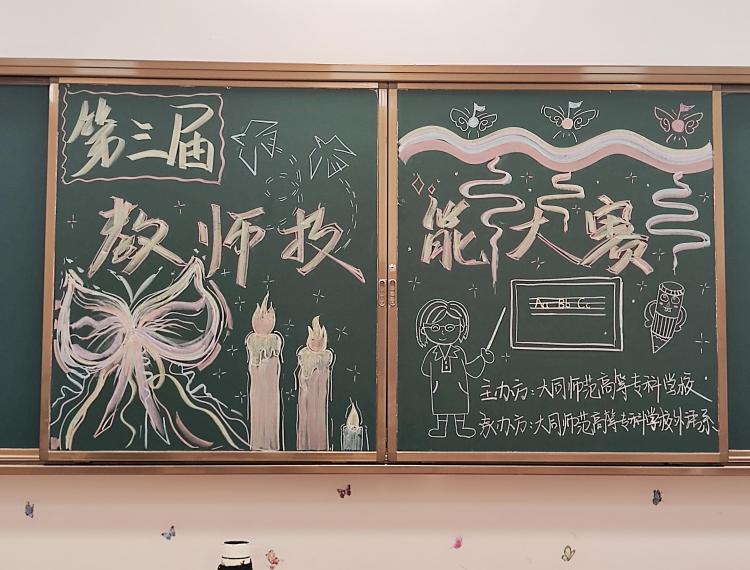 第三届
教师技能大赛
Aa Bb Cc
主办方:大同师范高等专科学校
承办方:大同师范高等专科学校外语系